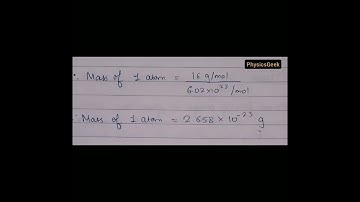 PhysicsGeek
∴ Mass of 1 atom = 16 g/mol
6.02×10²³ /mol
∴ Mass of 1 atom = 2.658 × 10⁻²³ g